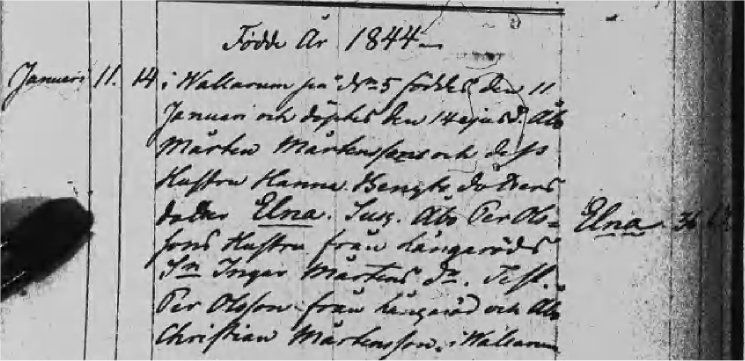 Födde År 1844
Januari 11. 14. i Wallarum på No 5 föddes den 11
Januari och döptes den 14 ejusd. Åbo
Mårten Mårtenssons och dess
Hustru Hanna Bengts Dotters
dotter Elna. Susc. Åbo Per Ols- Elna 36
sons Hustru från Långaröds
Sn Ingar Mårtens Dr. Test.
Per Olsson från Långaröd och Åbo
Christian Mårtensson i Wallarum